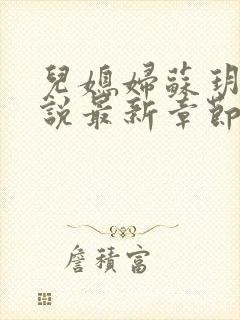 兒媳婦蘇玥
說最新章節
詹積富